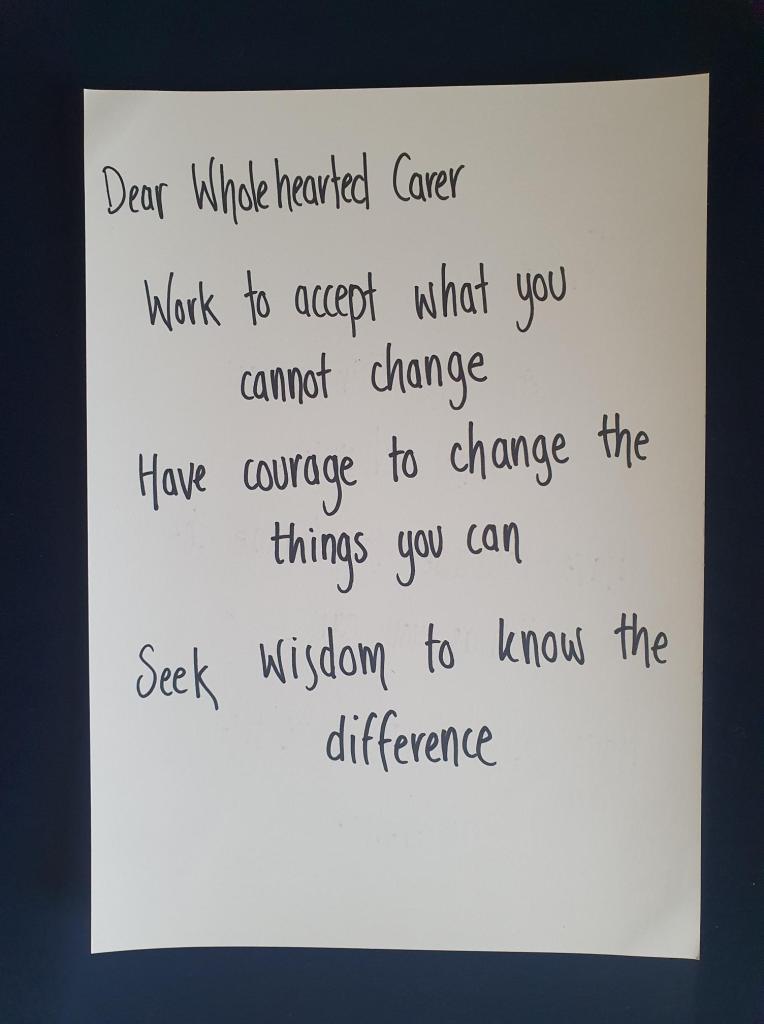 Dear Wholehearted Carer
Work to accept what you
cannot change
Have courage to change the
things you can
Seek wisdom to know the
difference